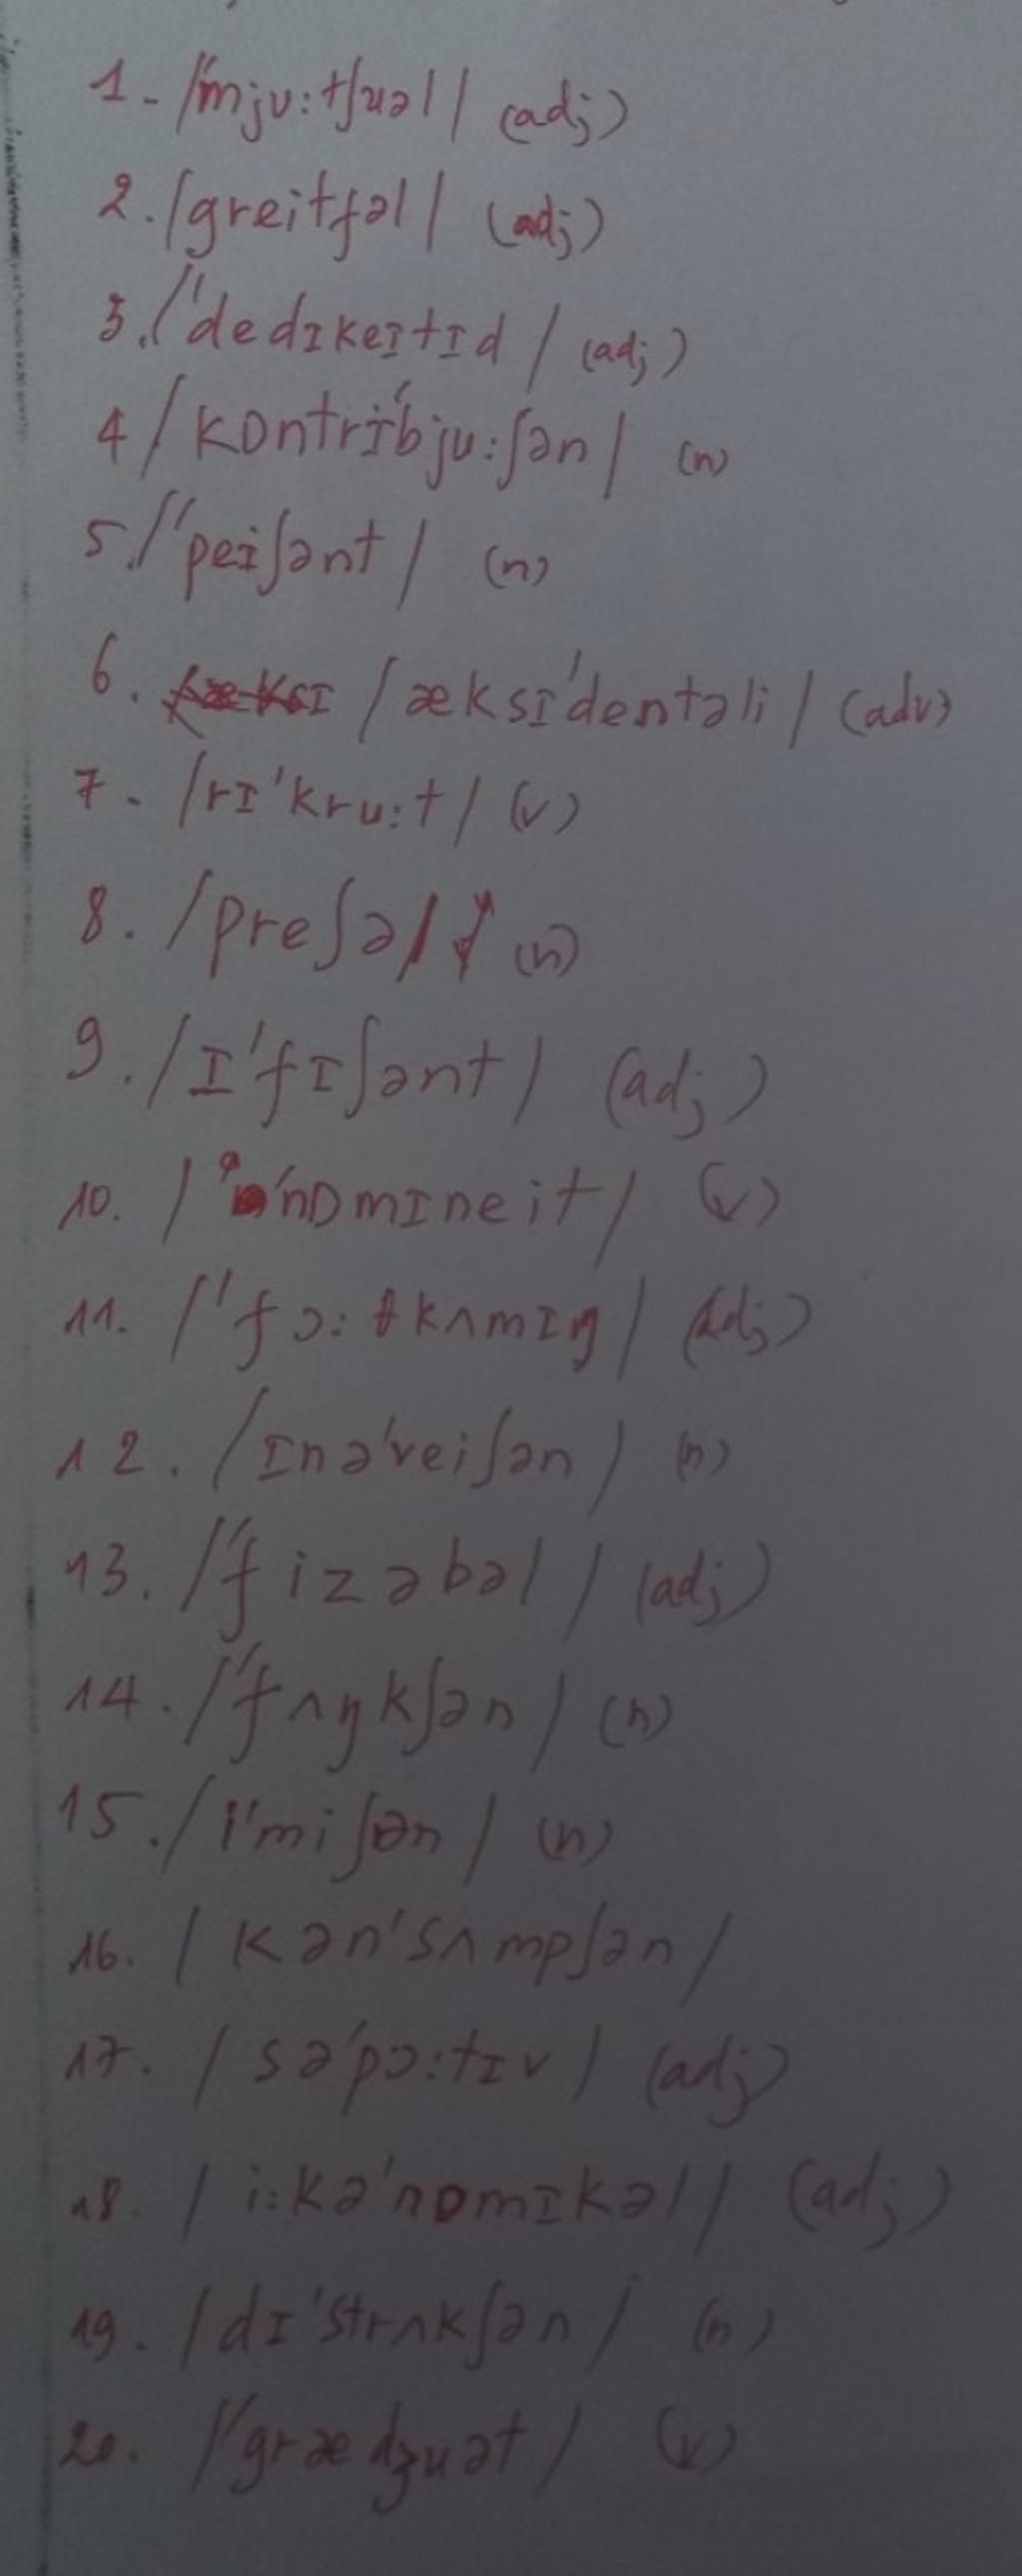 1- /'mju:tʃuəl/ (adj)
2. /greitfəl/ (adj)
3. /'dedɪkeɪtɪd/ (adj)
4 /kɒntrɪ'bju:ʃən/ (n)
5. /'peɪʃənt/ (n)
6. /æksɪ'dentəli/ (adv)
7. /rɪ'kru:t/ (v)
8. /preʃə/ (n)
9. /ɪ'fɪʃənt/ (adj)
10. /'nɒmɪneit/ (v)
11. /'fɔ:tkʌmɪŋ/ (adj)
12. /ɪnə'veiʃən/ (n)
13. /'fizəbəl/ (adj)
14. /'fʌŋkʃən/ (n)
15. /i'miʃən/ (n)
16. /kən'sʌmpʃən/
17. /sə'pɔ:tɪv/ (adj)
18. /i:kə'nɒmɪkəl/ (adj)
19. /dɪ'strʌkʃən/ (n)
20. /'grædʒuət/ (v)